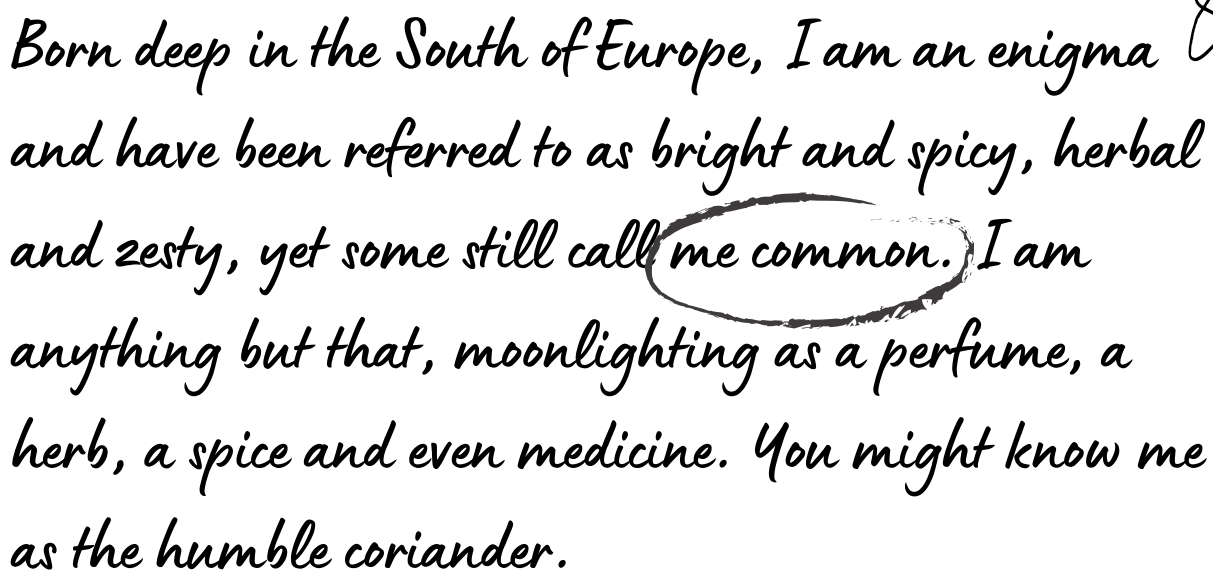 Born deep in the South of Europe, I am an enigma
and have been referred to as bright and spicy, herbal
and zesty, yet some still call me common. I am
anything but that, moonlighting as a perfume, a
herb, a spice and even medicine. You might know me
as the humble coriander.